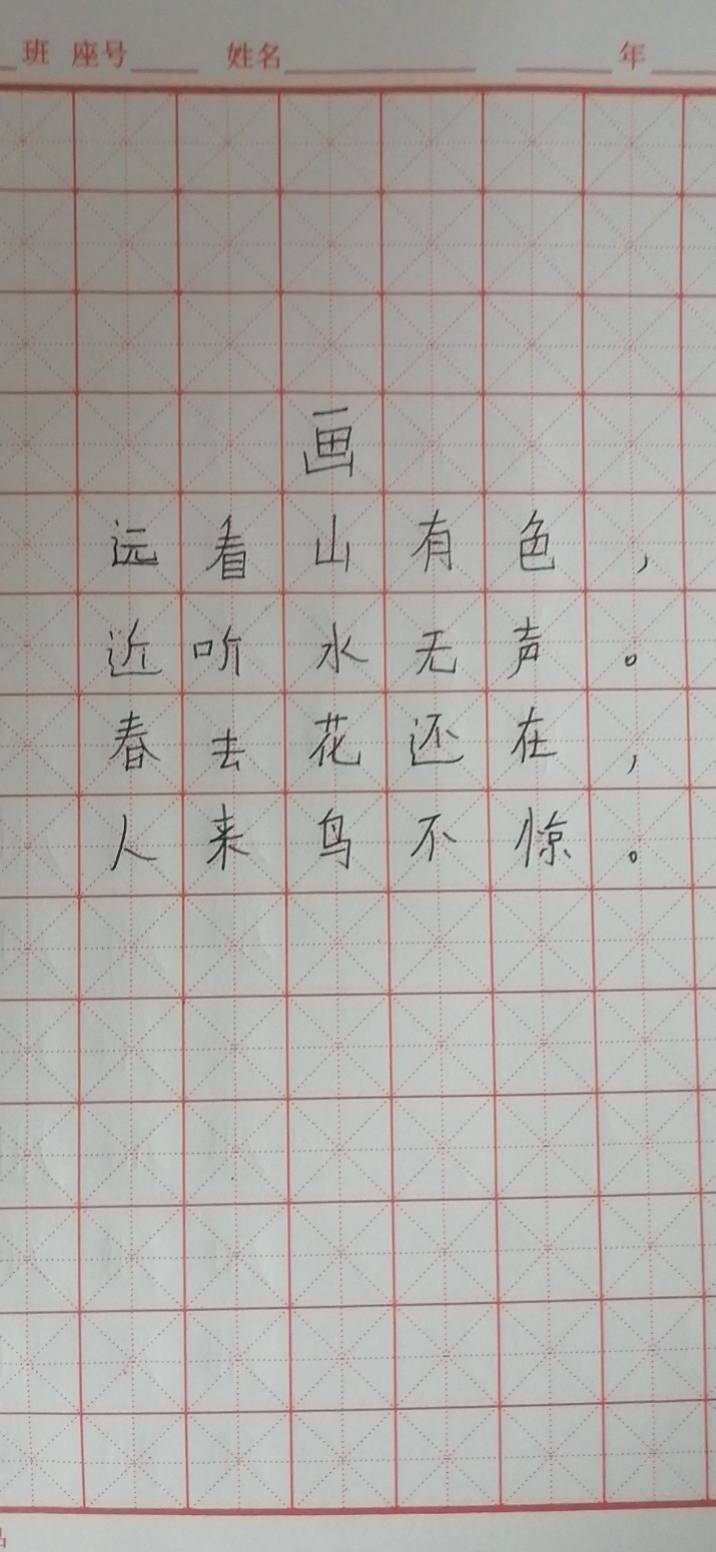 班 座号 姓名 年
画
远看山有色，
近听水无声。
春去花还在，
人来鸟不惊。